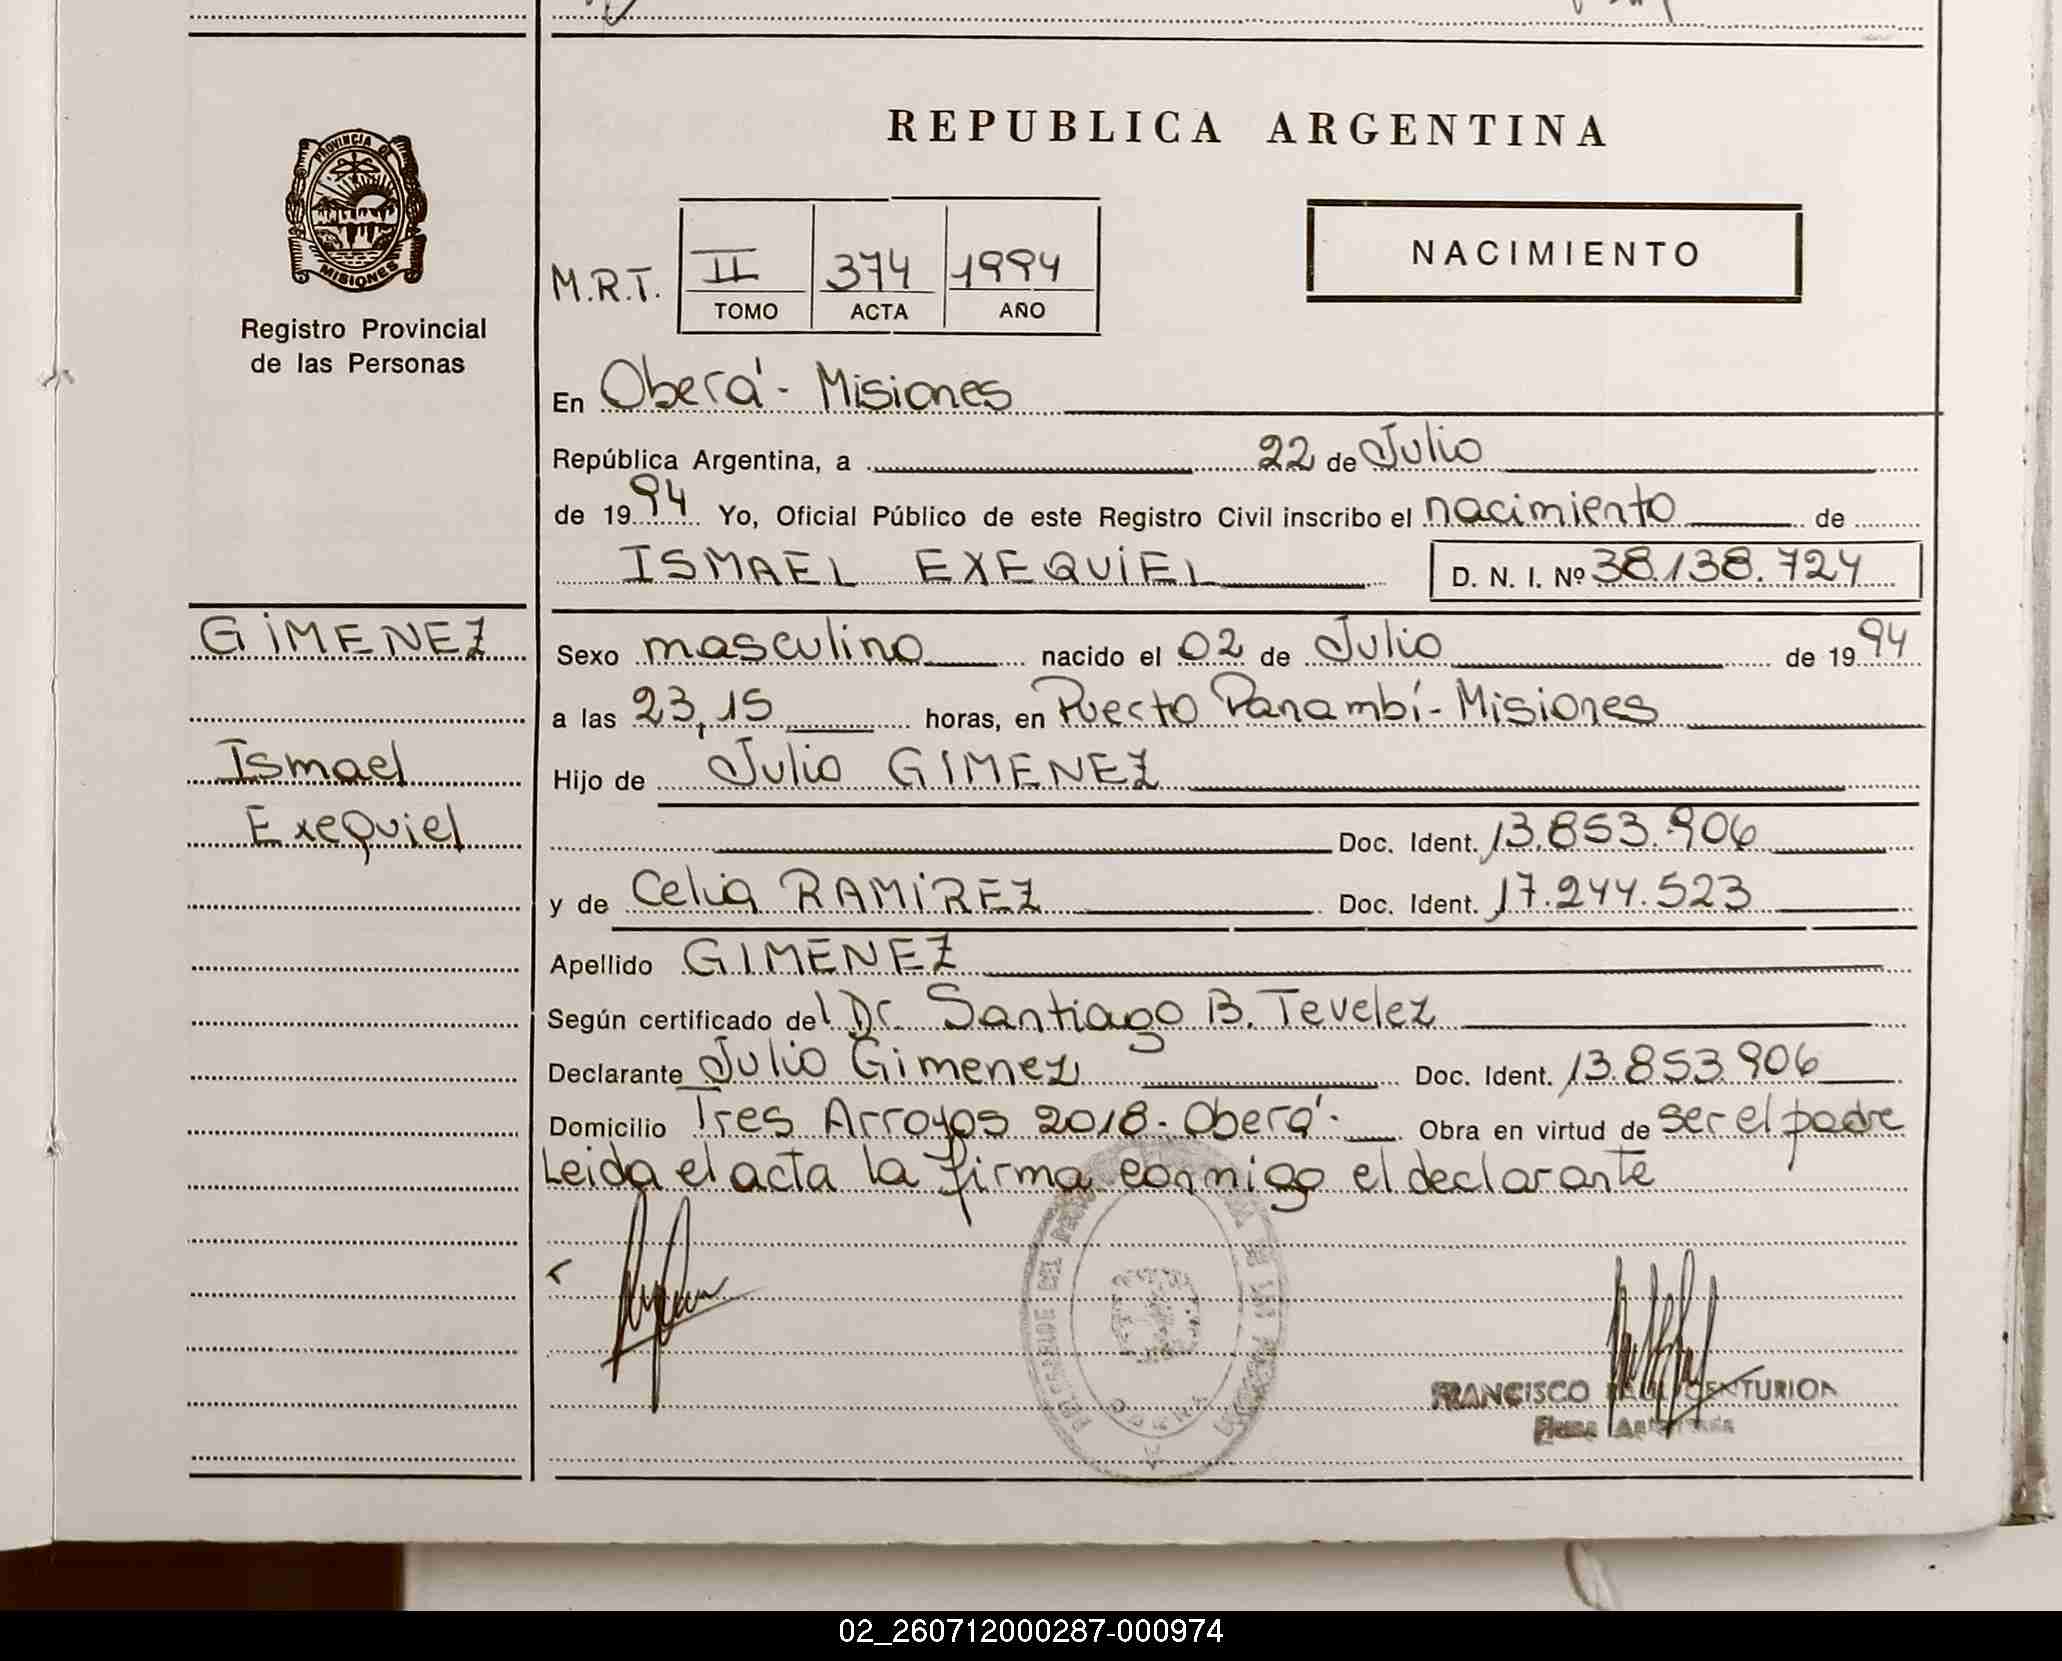 REPUBLICA ARGENTINA
PROVINCIA DE
MISIONES
Registro Provincial
de las Personas
M.R.T. II 374 1994
TOMO ACTA AÑO
NACIMIENTO
En Oberá - Misiones
República Argentina, a 22 de Julio
de 1994 Yo, Oficial Público de este Registro Civil inscribo el nacimiento de
ISMAEL EXEQUIEL D. N. I. Nº 38.138.724
GIMENEZ
Ismael
Exequiel
Sexo masculino nacido el 02 de Julio de 1994
a las 23,15 horas, en Puerto Panambí - Misiones
Hijo de Julio GIMENEZ
Doc. Ident. 13.853.906
y de Celia RAMIREZ Doc. Ident. 17.244.523
Apellido GIMENEZ
Según certificado del Dr. Santiago B. Tevelez
Declarante Julio Gimenez Doc. Ident. 13.853.906
Domicilio Tres Arroyos 2018 - Oberá - Obra en virtud de ser el padre
Leida el acta la firma conmigo el declarante
FRANCISCO CENTURION
Firma
02_260712000287-000974